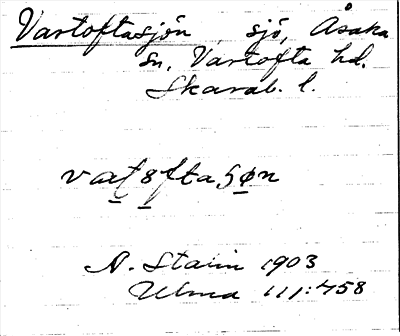 Vartoftasjön, sjö, Åsaka
sn, Vartofta hd.
Skarab. l.
A. Stalin 1903
Ulma 111:758